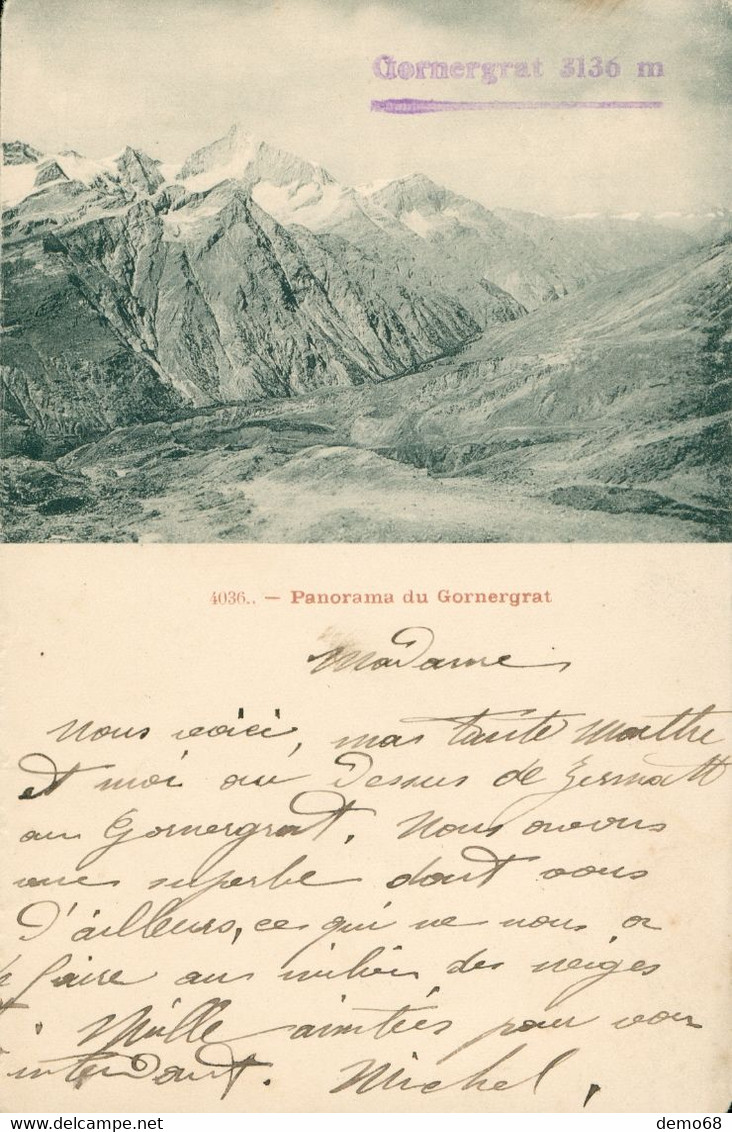 Gornergrat 3136 m
4036.. — Panorama du Gornergrat
Madame
Nous voici, ma tante Marthe
et moi au Dessus de Zermatt
au Gornergrat. Nous avons
une superbe dont vous
D'ailleurs, ce qui ne nous a
faire au milieu des neiges
Mille amitiés pour vous
Michel.
delcampe.net
demo68